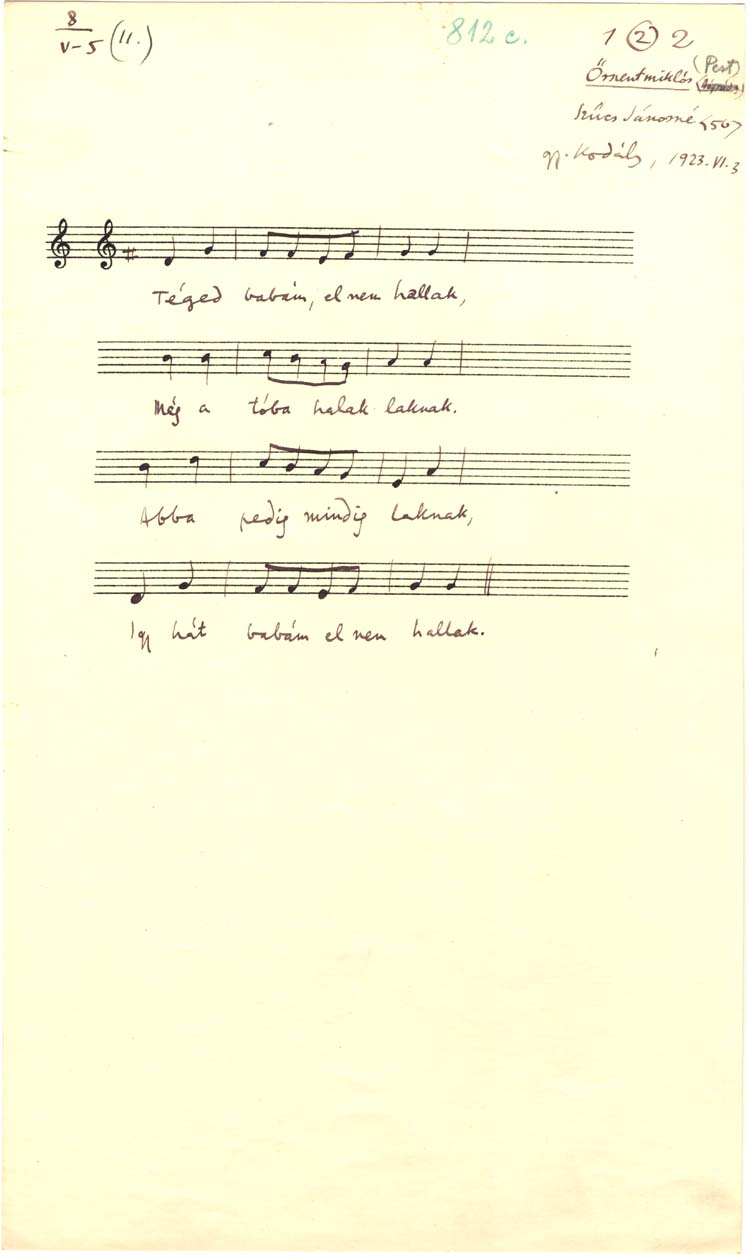 8
V-5 (11.)
812 c.
1 (2) 2
Őrszentmiklós (Pest)
Szűcs Jánosné (50)
gy. Kodály, 1923. VI. 3
Téged babám, el nem hallak,
Még a tóba halak laknak.
Abba pedig mindig laknak,
Igy hát babám el nem hallak.